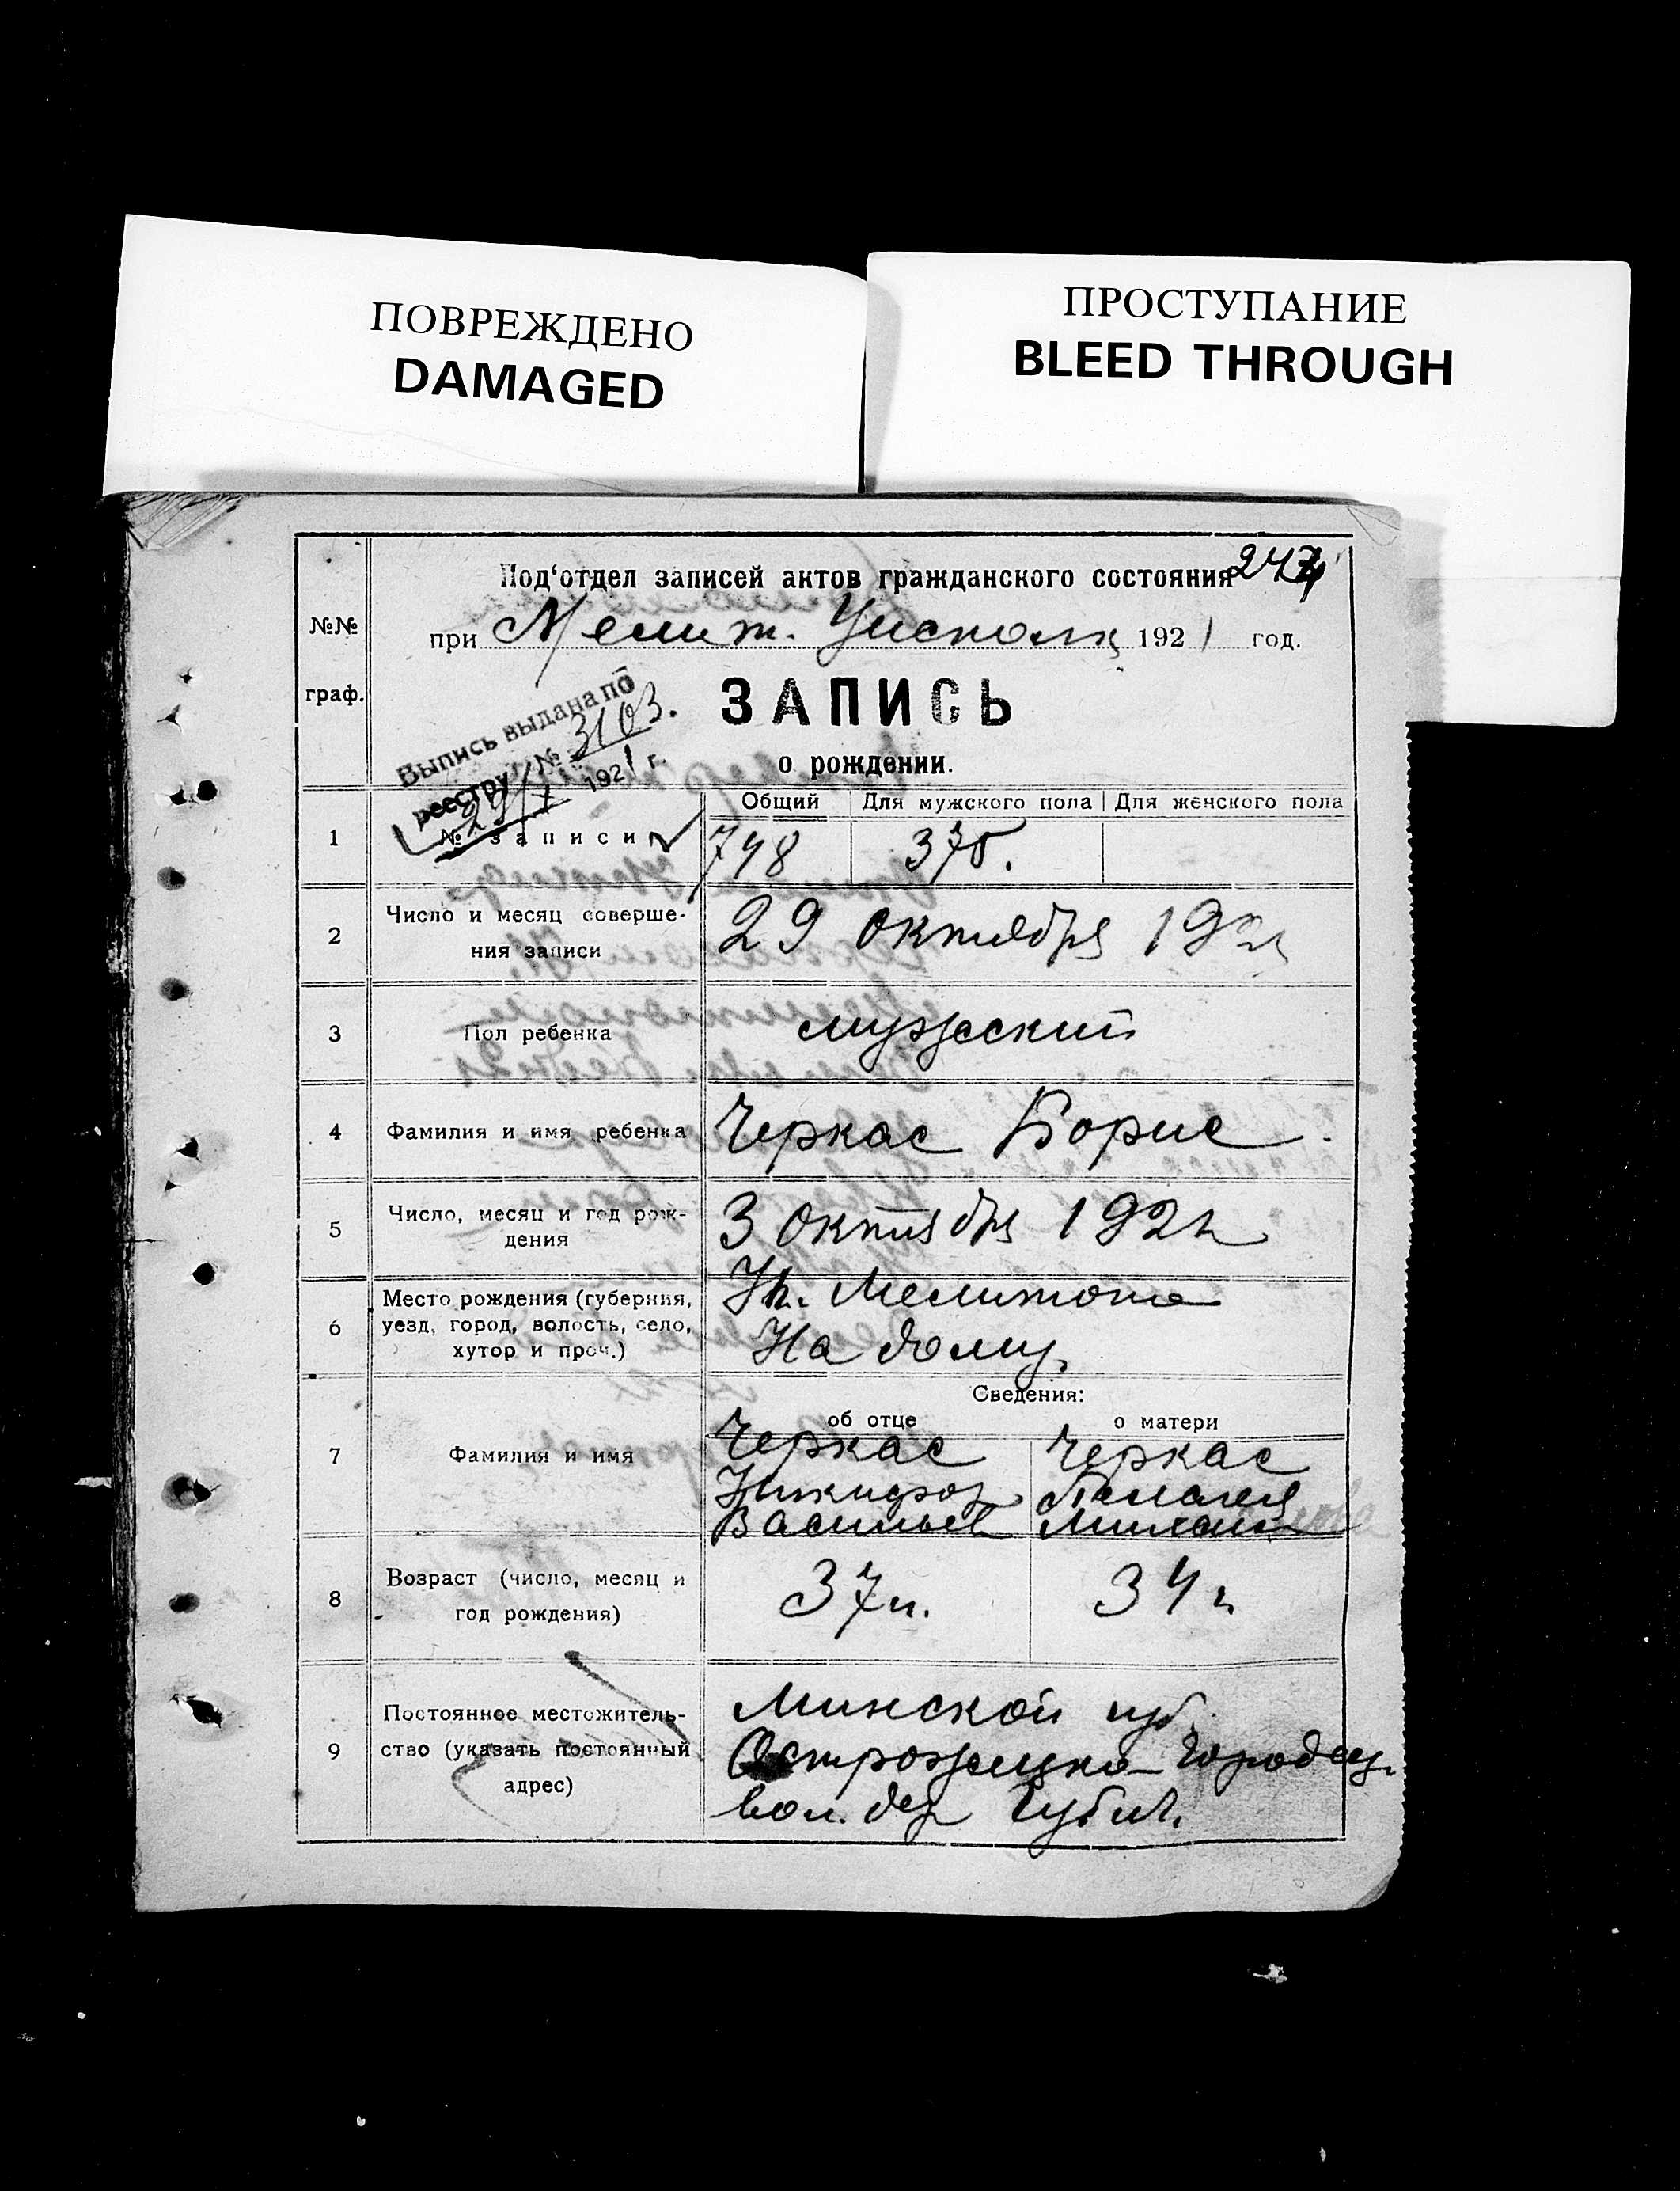 ПОВРЕЖДЕНО
DAMAGED
ПРОСТУПАНИЕ
BLEED THROUGH
Под‘отдел записей актов гражданского состояния
№№ граф.
при Мелит. Уисполк 1921 год.
Выпись выдана по
реестру № 3103.
1921 г.
ЗАПИСЬ
о рождении.
Общий Для мужского пола Для женского пола
1 № записи 748 375.
2 Число и месяц соверше-
ния записи 29 октября 1921
3 Пол ребенка мужеский
4 Фамилия и имя ребенка Черкас Борис.
5 Число, месяц и год рож-
дения 3 октября 1921 г
6 Место рождения (губерния,
уезд, город, волость, село,
хутор и проч.)
Мелитополь
На дому.
Сведения:
об отце о матери
7 Фамилия и имя
Черкас Черкас
Никифор Пелагея
Васильев Михаил
8 Возраст (число, месяц и
год рождения)
37 л. 34 г.
9 Постоянное местожитель-
ство (указать постоянный
адрес)
Минской губ.
Острожецко-Городец.
вол. дер Губич.